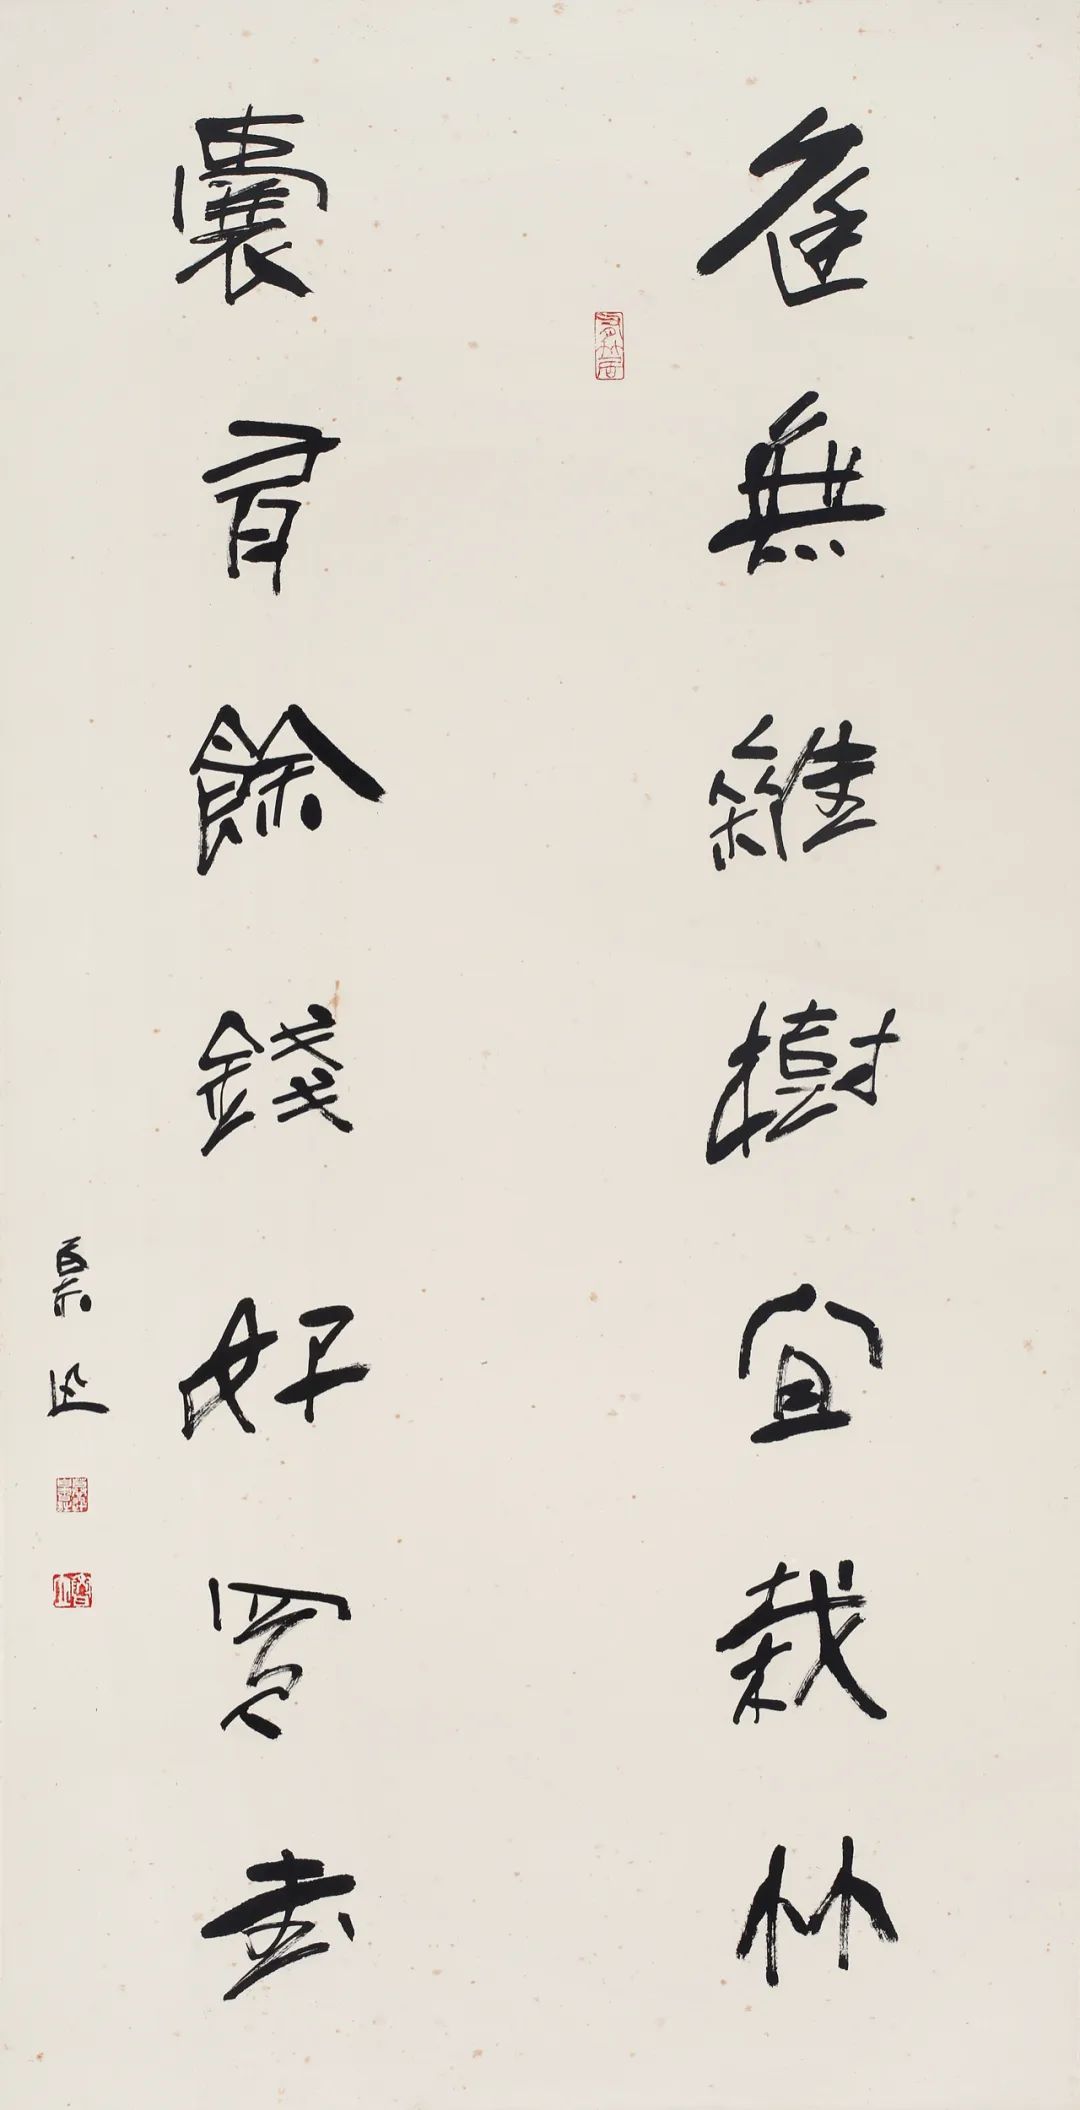 庭無雜樹宜栽竹
囊有餘錢好買書